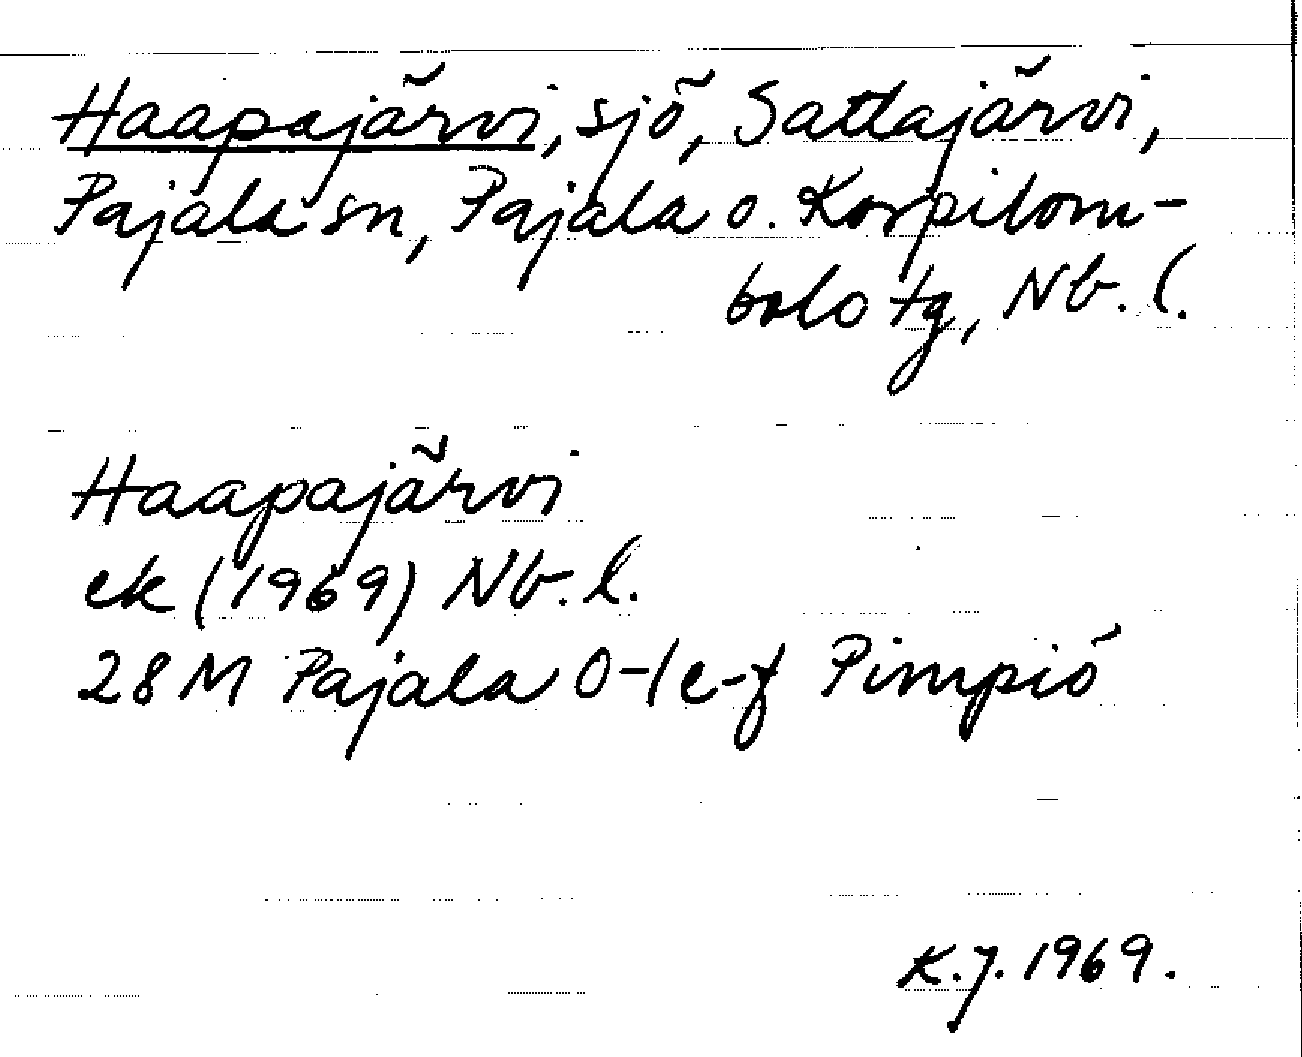 Haapajärvi, sjö, Sattajärvi,
Pajala sn, Pajala o. Korpilom-
bolo tg, Nb. l.
Haapajärvi
ek (1969) Nb. l.
28 M Pajala 0-1 e-f Pimpiö
K.J. 1969.